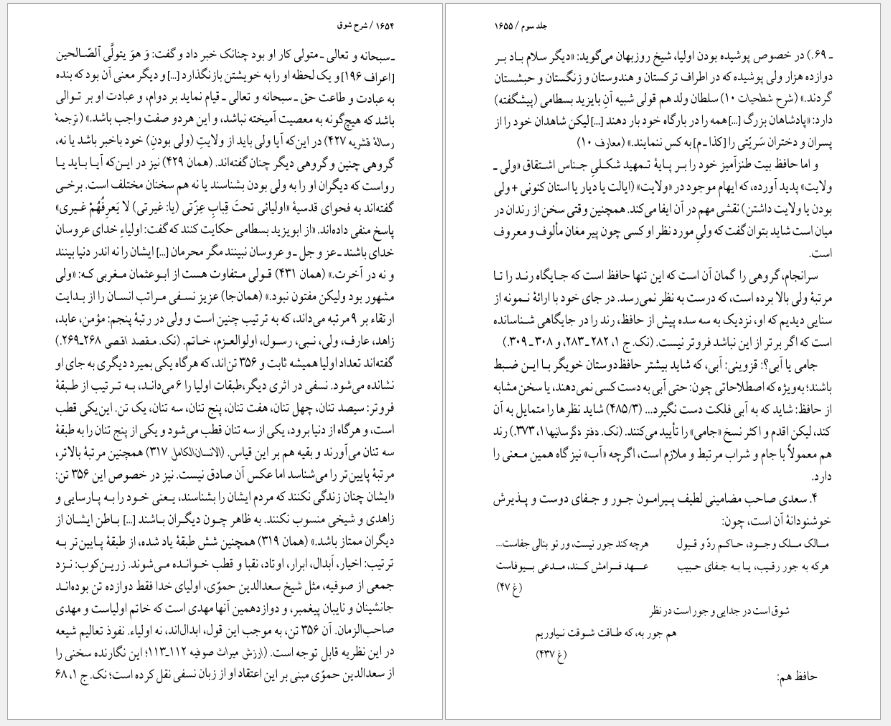 ۱۶۵۴ / شرح شوق
ـ سبحانه و تعالی ـ متولی کار او بود چنانک خبر داد و گفت: وَ هوَ یتولَّی الصّالحین
[اعراف ۱۹۶] و یک لحظه او را به خویشتن بازنگذارد [...] و دیگر معنی آن بود که بنده
به عبادت و طاعت حق ـ سبحانه و تعالی ـ قیام نماید بر دوام، و عبادت او بر توالی
باشد که هیچ‌گونه به معصیت آمیخته نباشد، و این هر دو صفت واجب باشد.» (ترجمهٔ
رسالهٔ قشریه ۴۲۷) در این‌که آیا ولی باید از ولایتِ (ولی بودنِ) خود باخبر باشد یا نه،
گروهی چنین و گروهی دیگر چنان گفته‌اند. (همان ۴۲۹) نیز در این‌که آیا باید یا
رواست که دیگران او را به ولی بودن بشناسند یا نه هم سخنان مختلف است. برخی
گفته‌اند به فحوای قدسیهٔ «اولیائی تحتَ قِبابِ عِزّتی (یا: غیرتی) لا یَعرِفُهُمْ غیری»
پاسخ منفی داده‌اند. «از ابویزید بسطامی حکایت کنند که گفت: اولیاءِ خدای عروسان
خدای باشند ـ عز و جل ـ و عروسان نبینند مگر محرمان [...] ایشان را نه اندر دنیا بینند
و نه در آخرت.» (همان ۴۳۱) قولی متفاوت هست از ابوعثمان مغربی که: «ولی
مشهور بود ولیکن مفتون نبود.» (همان‌جا) عزیز نسفی مراتب انسان را از بدایت
ارتقاء بر ۹ مرتبه می‌داند، که به ترتیب چنین است و ولی در رتبهٔ پنجم: مؤمن، عابد،
زاهد، عارف، ولی، نبی، رسول، اولوالعزم، خاتم. (نک. مقصد اقصی ۲۶۸ـ۲۶۹.)
گفته‌اند تعداد اولیا همیشه ثابت و ۳۵۶ تن‌اند، که هرگاه یکی بمیرد دیگری به جای او
نشانده می‌شود. نسفی در اثری دیگر، طبقات اولیا را ۶ می‌داند، به ترتیب از طبقهٔ
فروتر: سیصد تنان، چهل تنان، هفت تنان، پنج تنان، سه تنان، یک تن. این‌یکی قطب
است، و هرگاه از دنیا برود، یکی از سه تنان قطب می‌شود و یکی از پنج تنان را به طبقهٔ
سه تنان می‌آورند و بقیه هم بر این قیاس. (الانسان‌الکامل ۳۱۷) همچنین مرتبهٔ بالاتر،
مرتبهٔ پایین‌تر را می‌شناسد اما عکس آن صادق نیست. نیز در خصوص این ۳۵۶ تن:
«ایشان چنان زندگی نکنند که مردم ایشان را بشناسند، یعنی خود را به پارسایی و
زاهدی و شیخی منسوب نکنند. به ظاهر چون دیگران باشند [...] باطن ایشان از
دیگران ممتاز باشد.» (همان ۳۱۹) همچنین شش طبقهٔ یاد شده، از طبقهٔ پایین‌تر به
ترتیب: اخیار، ابدال، ابرار، اوتاد، نقبا و قطب خوانده می‌شوند. زرین‌کوب: نزد
جمعی از صوفیه، مثل شیخ سعدالدین حموّی، اولیای خدا فقط دوازده تن بوده‌اند
جانشینان و نایبان پیغمبر، و دوازدهمین آنها مهدی است که خاتم اولیاست و مهدی
صاحب‌الزمان. آن ۳۵۶ تن، به موجب این قول، ابدال‌اند، نه اولیاء. نفوذ تعالیم شیعه
در این نظریه قابل توجه است. (ارزش میراث صوفیه ۱۱۲ـ۱۱۳؛ این نگارنده سخنی را
از سعدالدین حموّی مبنی بر این اعتقاد او از زبان نسفی نقل کرده است؛ نک. ج ۱، ۶۸
جلد سوم / ۱۶۵۵
ـ ۶۹.) در خصوص پوشیده بودن اولیا، شیخ روزبهان می‌گوید: «دیگر سلام باد بر
دوازده هزار ولی پوشیده که در اطراف ترکستان و هندوستان و زنگستان و حبشستان
گردند.» (شرح شطحیات ۱۰) سلطان ولد هم قولی شبیه آنِ بایزید بسطامی (پیشگفته)
دارد: «پادشاهان بزرگ [...] همه را در بارگاه خود بار دهند [...] لیکن شاهدان خود را از
پسران و دختران سَریّتی را [کذا ـ م] به کس ننمایند.» (معارف ۱۰)
و اما حافظ بیت طنزآمیز خود را بر پایهٔ تمهید شکلیِ جناس اشتقاق «ولی ـ
ولایت» پدید آورده، که ایهام موجود در «ولایت» (ایالت یا دیار یا استان کنونی + ولی
بودن یا ولایت داشتن) نقشی مهم در آن ایفا می‌کند. همچنین وقتی سخن از رندان در
میان است شاید بتوان گفت که ولیِ مورد نظر او کسی چون پیر مغان مألوف و معروف
است.
سرانجام، گروهی را گمان آن است که این تنها حافظ است که جایگاه رند را تا
مرتبهٔ ولی بالا برده است، که درست به نظر نمی‌رسد. در جای خود با ارائهٔ نمونه از
سنایی دیدیم که او، نزدیک به سه سده پیش از حافظ، رند را در جایگاهی شناسانده
است که اگر برتر از این نباشد فروتر نیست. (نک. ج ۱، ۲۸۲ـ۲۸۳، و ۳۰۸ـ۳۰۹.)
جامی یا آبی؟: قزوینی: آبی، که شاید بیشتر حافظ‌دوستان خوگر با این ضبط
باشند؛ به‌ویژه که اصطلاحاتی چون: حتی آبی به دست کسی نمی‌دهند، یا سخن مشابه
از حافظ: شاید که به آبی فلکت دست نگیرد... (۴۸۵/۳) شاید نظرها را متمایل به آن
کند، لیکن اقدم و اکثر نسخ «جامی» را تأیید می‌کنند. (نک. دفتر دگرسانیها ۱، ۳۷۳.) رند
هم معمولاً با جام و شراب مرتبط و ملازم است، اگرچه «آب» نیز گاه همین معنی را
دارد.
۴. سعدی صاحب مضامینی لطیف پیرامون جور و جفای دوست و پذیرش
خوشنودانهٔ آن است، چون:
مالک ملک وجود، حاکم ردّ و قبول هرچه کند جور نیست، ور تو بنالی جفاست...
هرکه به جور رقیب، یا به جفای حبیب عهد فرامش کند، مدعی بیوفاست
(غ ۴۷)
شوق است در جدایی و جور است در نظر
هم جور به، که طاقت شوقت نیاوریم
(غ ۴۳۷)
حافظ هم: